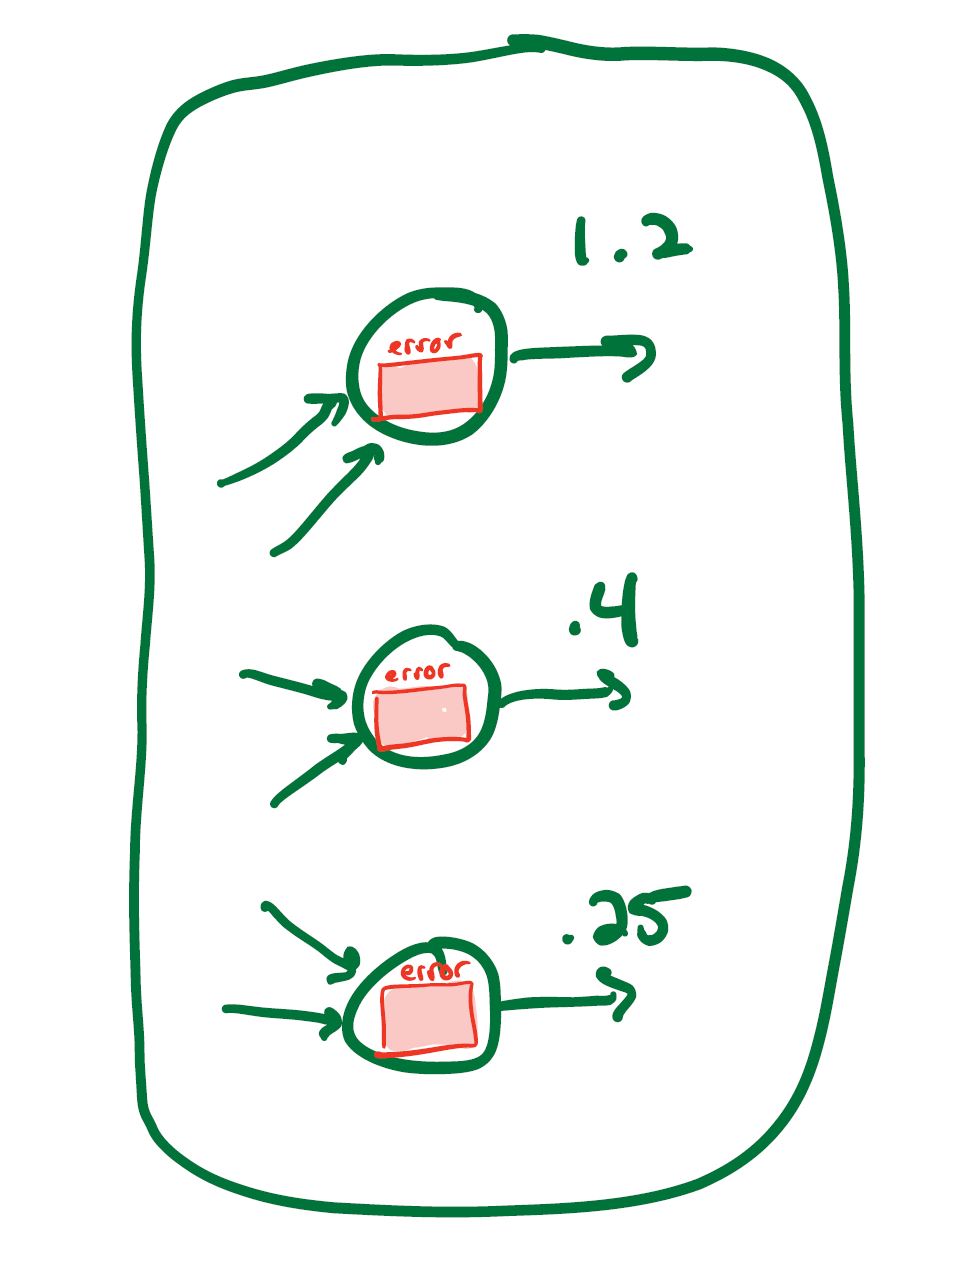 1.2
error
.4
error
.25
error